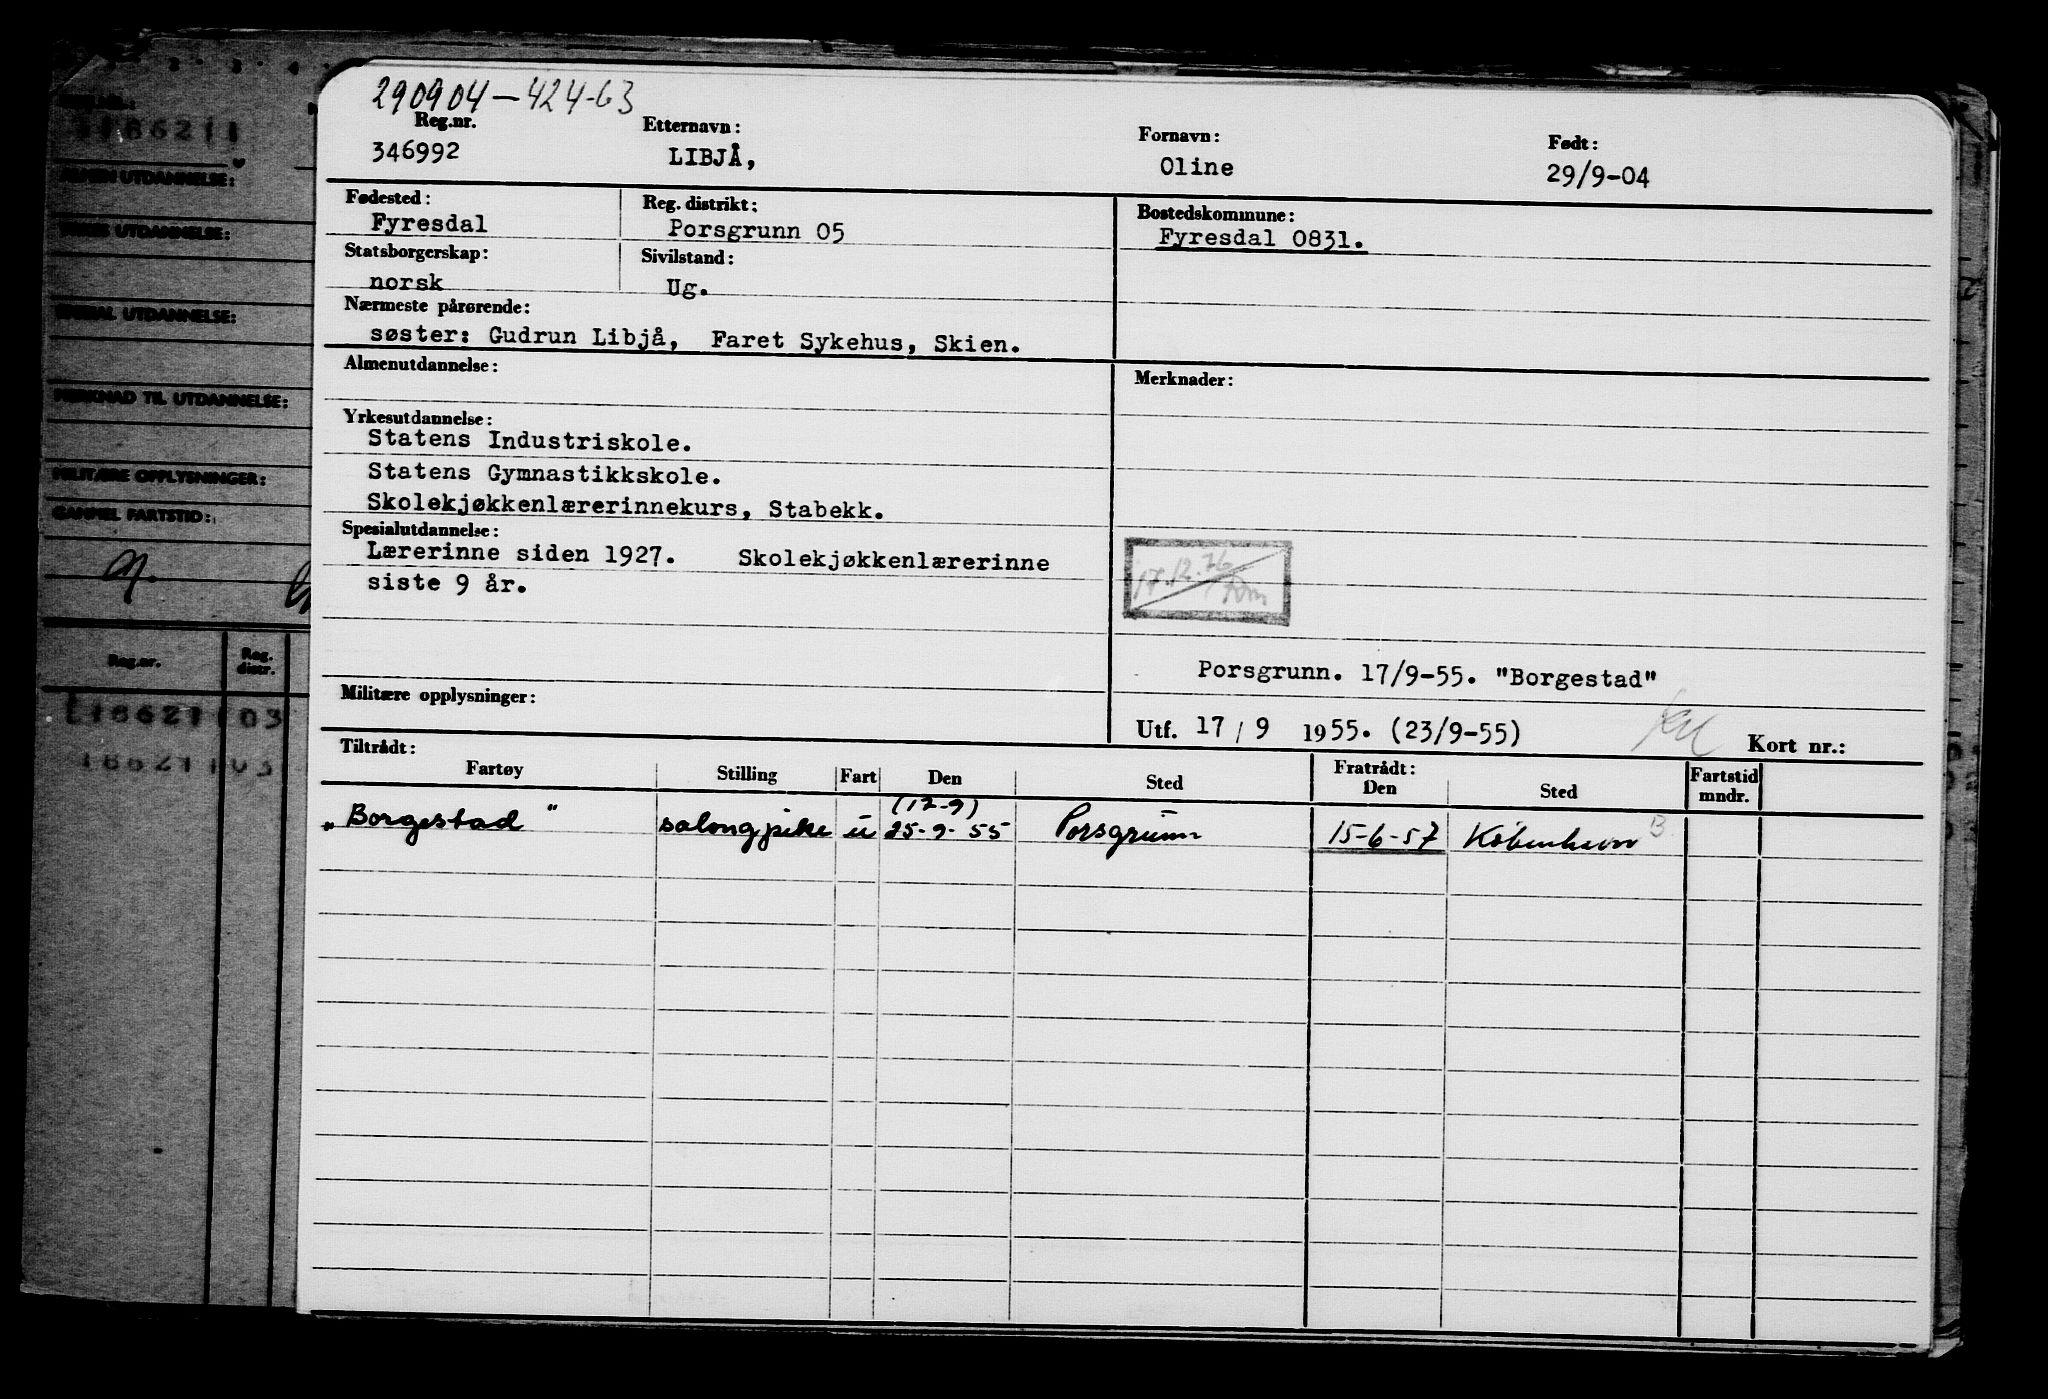 290904-424-63
Reg.nr. Etternavn: Fornavn: Født:
346992 LIBJÅ, Oline 29/9-04
Fødested: Reg. distrikt: Bostedskommune:
Fyresdal Porsgrunn 05 Fyresdal 0831.
Statsborgerskap: Sivilstand:
norsk Ug.
Nærmeste pårørende:
søster: Gudrun Libjå, Faret Sykehus, Skien.
Almenutdannelse: Merknader:
Yrkesutdannelse:
Statens Industriskole.
Statens Gymnastikkskole.
Skolekjøkkenlærerinnekurs, Stabekk.
Spesialutdannelse:
Lærerinne siden 1927. Skolekjøkkenlærerinne
siste 9 år.
17.12.76
Porsgrunn. 17/9-55. "Borgestad"
Militære opplysninger:
Utf. 17/9 1955. (23/9-55) Kort nr.:
Tiltrådt: Fratrådt: Fartstid
Fartøy Stilling Fart Den Sted Den Sted mndr.
(12-9)
"Borgestad" salongpike u 25-9-55 Porsgrunn 15-6-57 København B.
186211
ALMEN UTDANNELSE:
YRKES UTDANNELSE:
SPESIAL UTDANNELSE:
MERKNAD TIL UTDANNELSE:
MILITÆRE OPPLYSNINGER:
GAMMEL FARTSTID:
Reg.nr. Reg. distr.
186211 03
186211 03